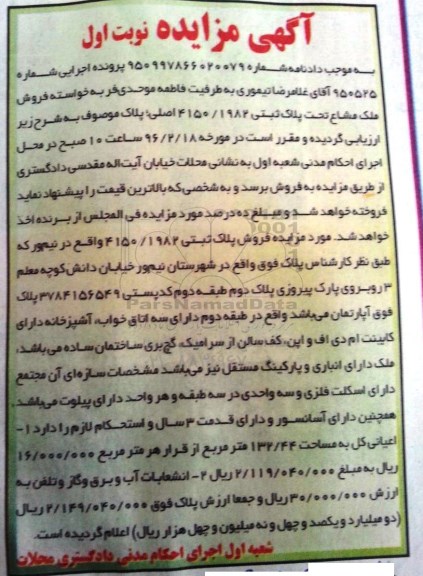 آگهی مزایده نوبت اول
به موجب دادنامه شماره ۹۵۰۹۹۷۸۶۶۰۲۰۰۷۹۰ پرونده اجرایی شماره
۹۵۰۵۲۵ آقای غلامرضا تیموری به طرفیت فاطمه موحدی‌فر به خواسته فروش
ملک مشاع تحت پلاک ثبتی ۴۱۵۰/۱۹۸۲ اصلی؛ پلاک موصوف به شرح زیر
ارزیابی گردیده و مقرر است در مورخه ۹۶/۲/۱۸ ساعت ۱۰ صبح در محل
اجرای احکام مدنی شعبه اول به نشانی محلات خیابان آیت‌اله مقدسی دادگستری
از طریق مزایده به فروش برسد و به شخصی که بالاترین قیمت را پیشنهاد نماید
فروخته خواهد شد و مبلغ ده درصد مورد مزایده فی المجلس از برنده اخذ
خواهد شد. مورد مزایده فروش پلاک ثبتی ۴۱۵۰/۱۹۸۲ واقع در نیم‌ور که
طبق نظر کارشناس پلاک فوق واقع در شهرستان نیم‌ور خیابان دانش کوچه معلم
۳ روبروی پارک پیروزی پلاک دوم طبقه دوم کدپستی ۳۷۸۴۱۵۶۵۴۹ پلاک
فوق آپارتمان می‌باشد واقع در طبقه دوم دارای سه اتاق خواب، آشپزخانه دارای
کابینت ام دی اف و اپن، کف سالن از سرامیک، گچ‌بری ساختمان ساده می‌باشد،
ملک دارای انباری و پارکینگ مستقل نیز می‌باشد مشخصات سازه‌ای آن مجتمع
دارای اسکلت فلزی و سه واحدی در سه طبقه و هر واحد دارای پیلوت می‌باشد.
همچنین دارای آسانسور و دارای قدمت ۳ سال و استحکام لازم را دارد ۱-
اعیانی کل به مساحت ۱۳۲/۴۴ متر مربع از قرار هر متر مربع ۱۶/۰۰۰/۰۰۰
ریال به مبلغ ۲/۱۱۹/۰۴۰/۰۰۰ ریال ۲- انشعابات آب و برق و گاز و تلفن به
ارزش ۳۰/۰۰۰/۰۰۰ ریال و جمعا ارزش پلاک فوق ۲/۱۴۹/۰۴۰/۰۰۰ ریال
(دو میلیارد و یکصد و چهل و نه میلیون و چهل هزار ریال) اعلام گردیده است.
شعبه اول اجرای احکام مدنی دادگستری محلات
ParsNamadData